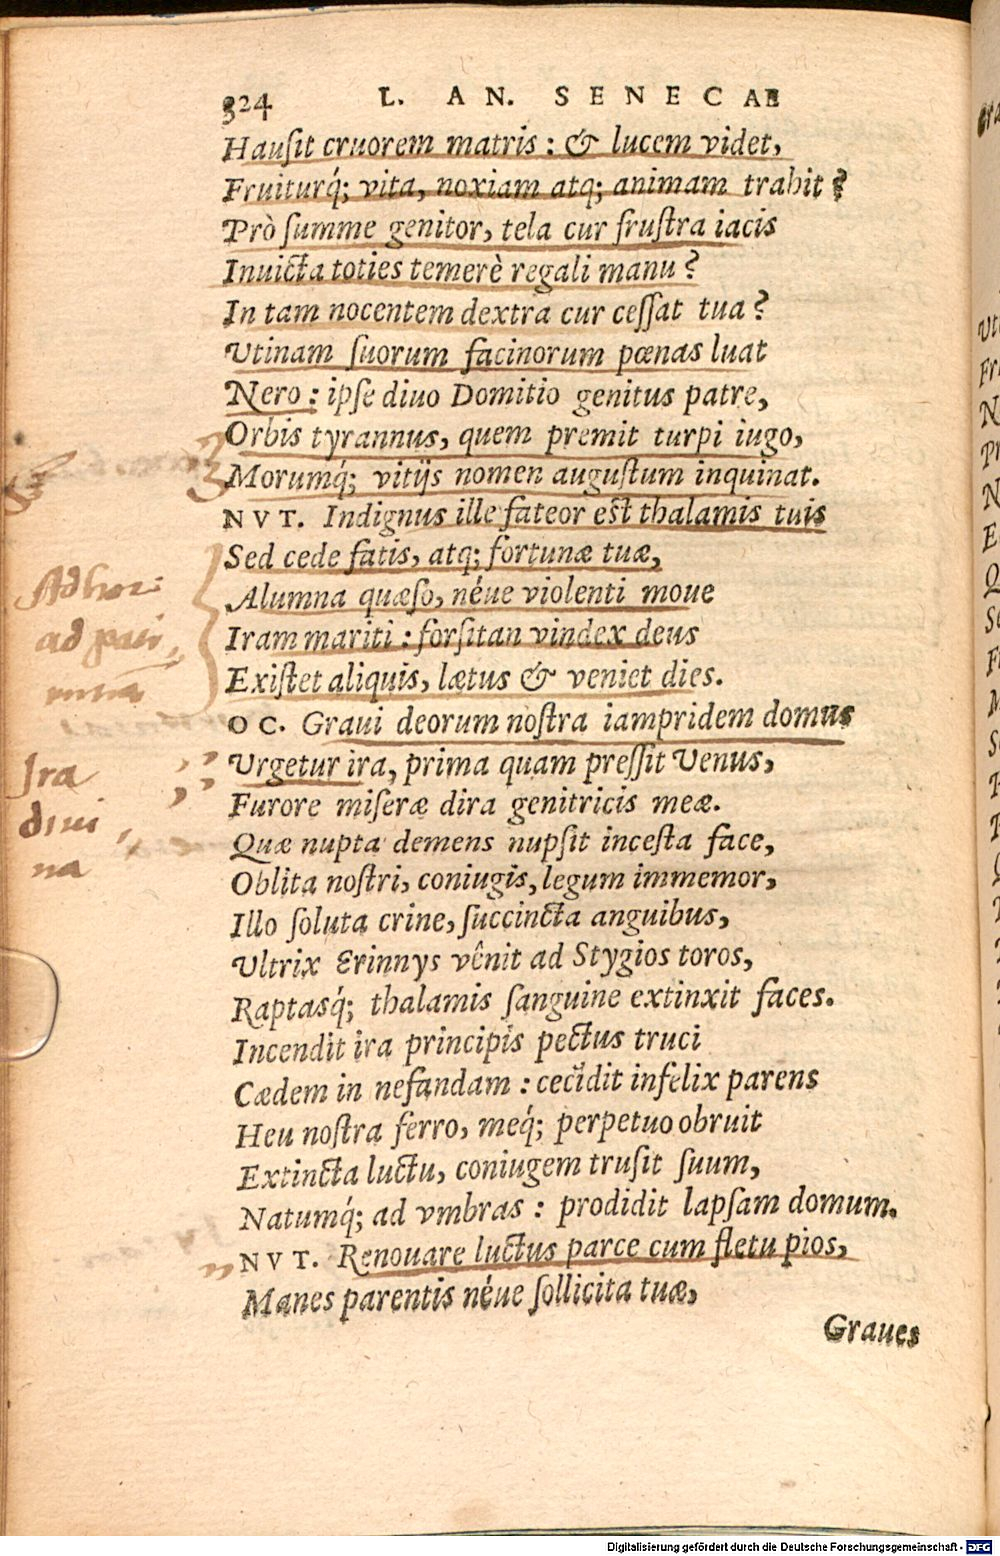 324 L. AN. SENECAE
Hauſit cruorem matris : & lucem videt,
Fruiturq́; vita, noxiam atq; animam trahit?
Prò ſumme genitor, tela cur fruſtra iacis
Inuicta toties temerè regali manu?
In tam nocentem dextra cur ceſſat tua?
Vtinam ſuorum facinorum pœnas luat
Nero : ipſe diuo Domitio genitus patre,
Orbis tyrannus, quem premit turpi iugo,
Morumq́; vitijs nomen auguſtum inquinat.
NVT. Indignus ille fateor eſt thalamis tuis
Sed cede fatis, atq; fortunæ tuæ,
Adhor:
Alumna quæſo, néue violenti moue
ad pati
Iram mariti : forſitan vindex deus
Exiſtet aliquis, lætus & veniet dies.
OC. Graui deorum noſtra iampridem domus
Ira
Vrgetur ira, prima quam preſſit Venus,
Furore miſeræ dira genitricis meæ.
diui
na
Quæ nupta demens nupſit inceſta face,
Oblita noſtri, coniugis, legum immemor,
Illo ſoluta crine, ſuccincta anguibus,
Vltrix Erinnys vênit ad Stygios toros,
Raptasq́; thalamis ſanguine extinxit faces.
Incendit ira principis pectus truci
Cædem in nefandam : cecidit infelix parens
Heu noſtra ferro, meq́; perpetuo obruit
Extincta luctu, coniugem truſit ſuum,
Natumq́; ad vmbras : prodidit lapſam domum.
NVT. Renouare luctus parce cum fletu pios,
Manes parentis néue ſollicita tuæ,
Graues
Digitalisierung gefördert durch die Deutsche Forschungsgemeinschaft - DFG